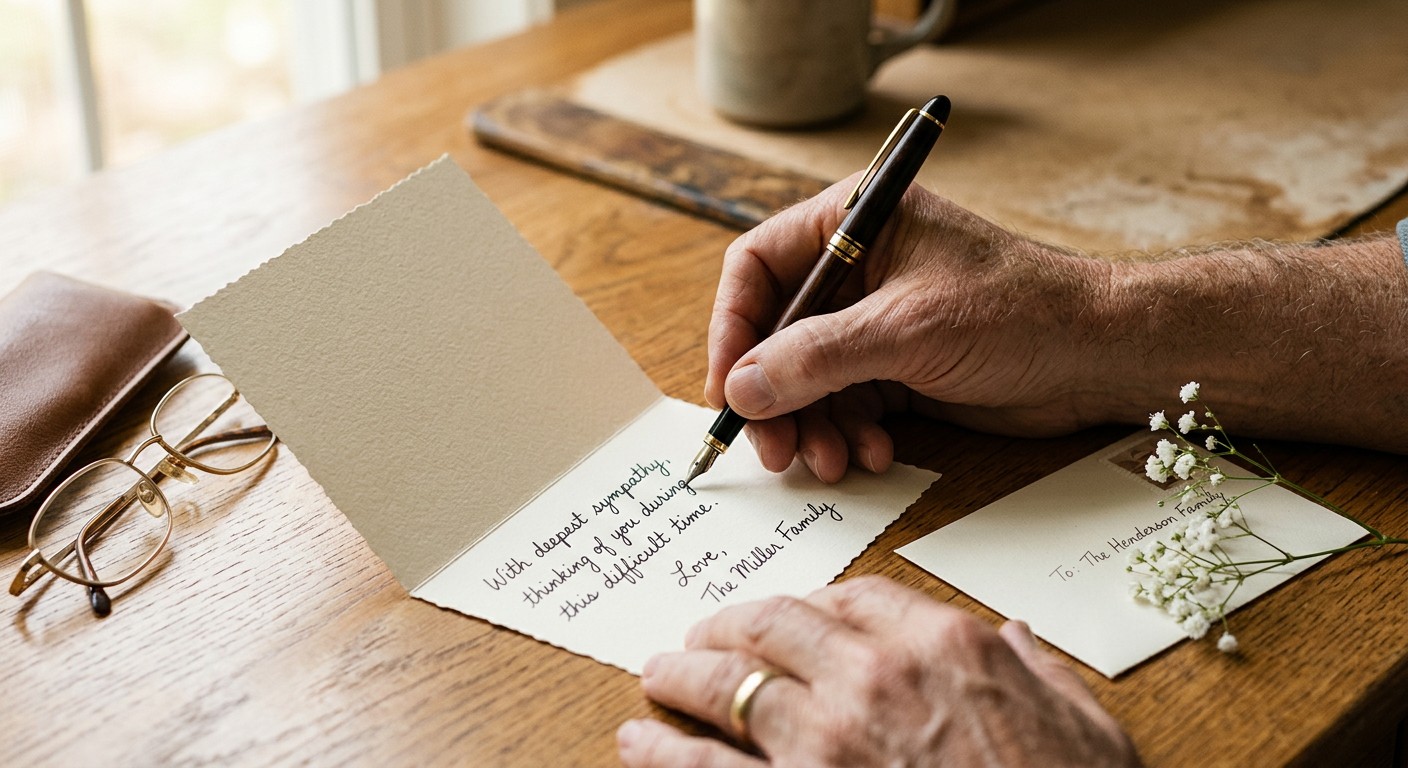 With deepest sympathy,
thinking of you during
this difficult time.
Love,
The Miller Family
To: The Henderson Family